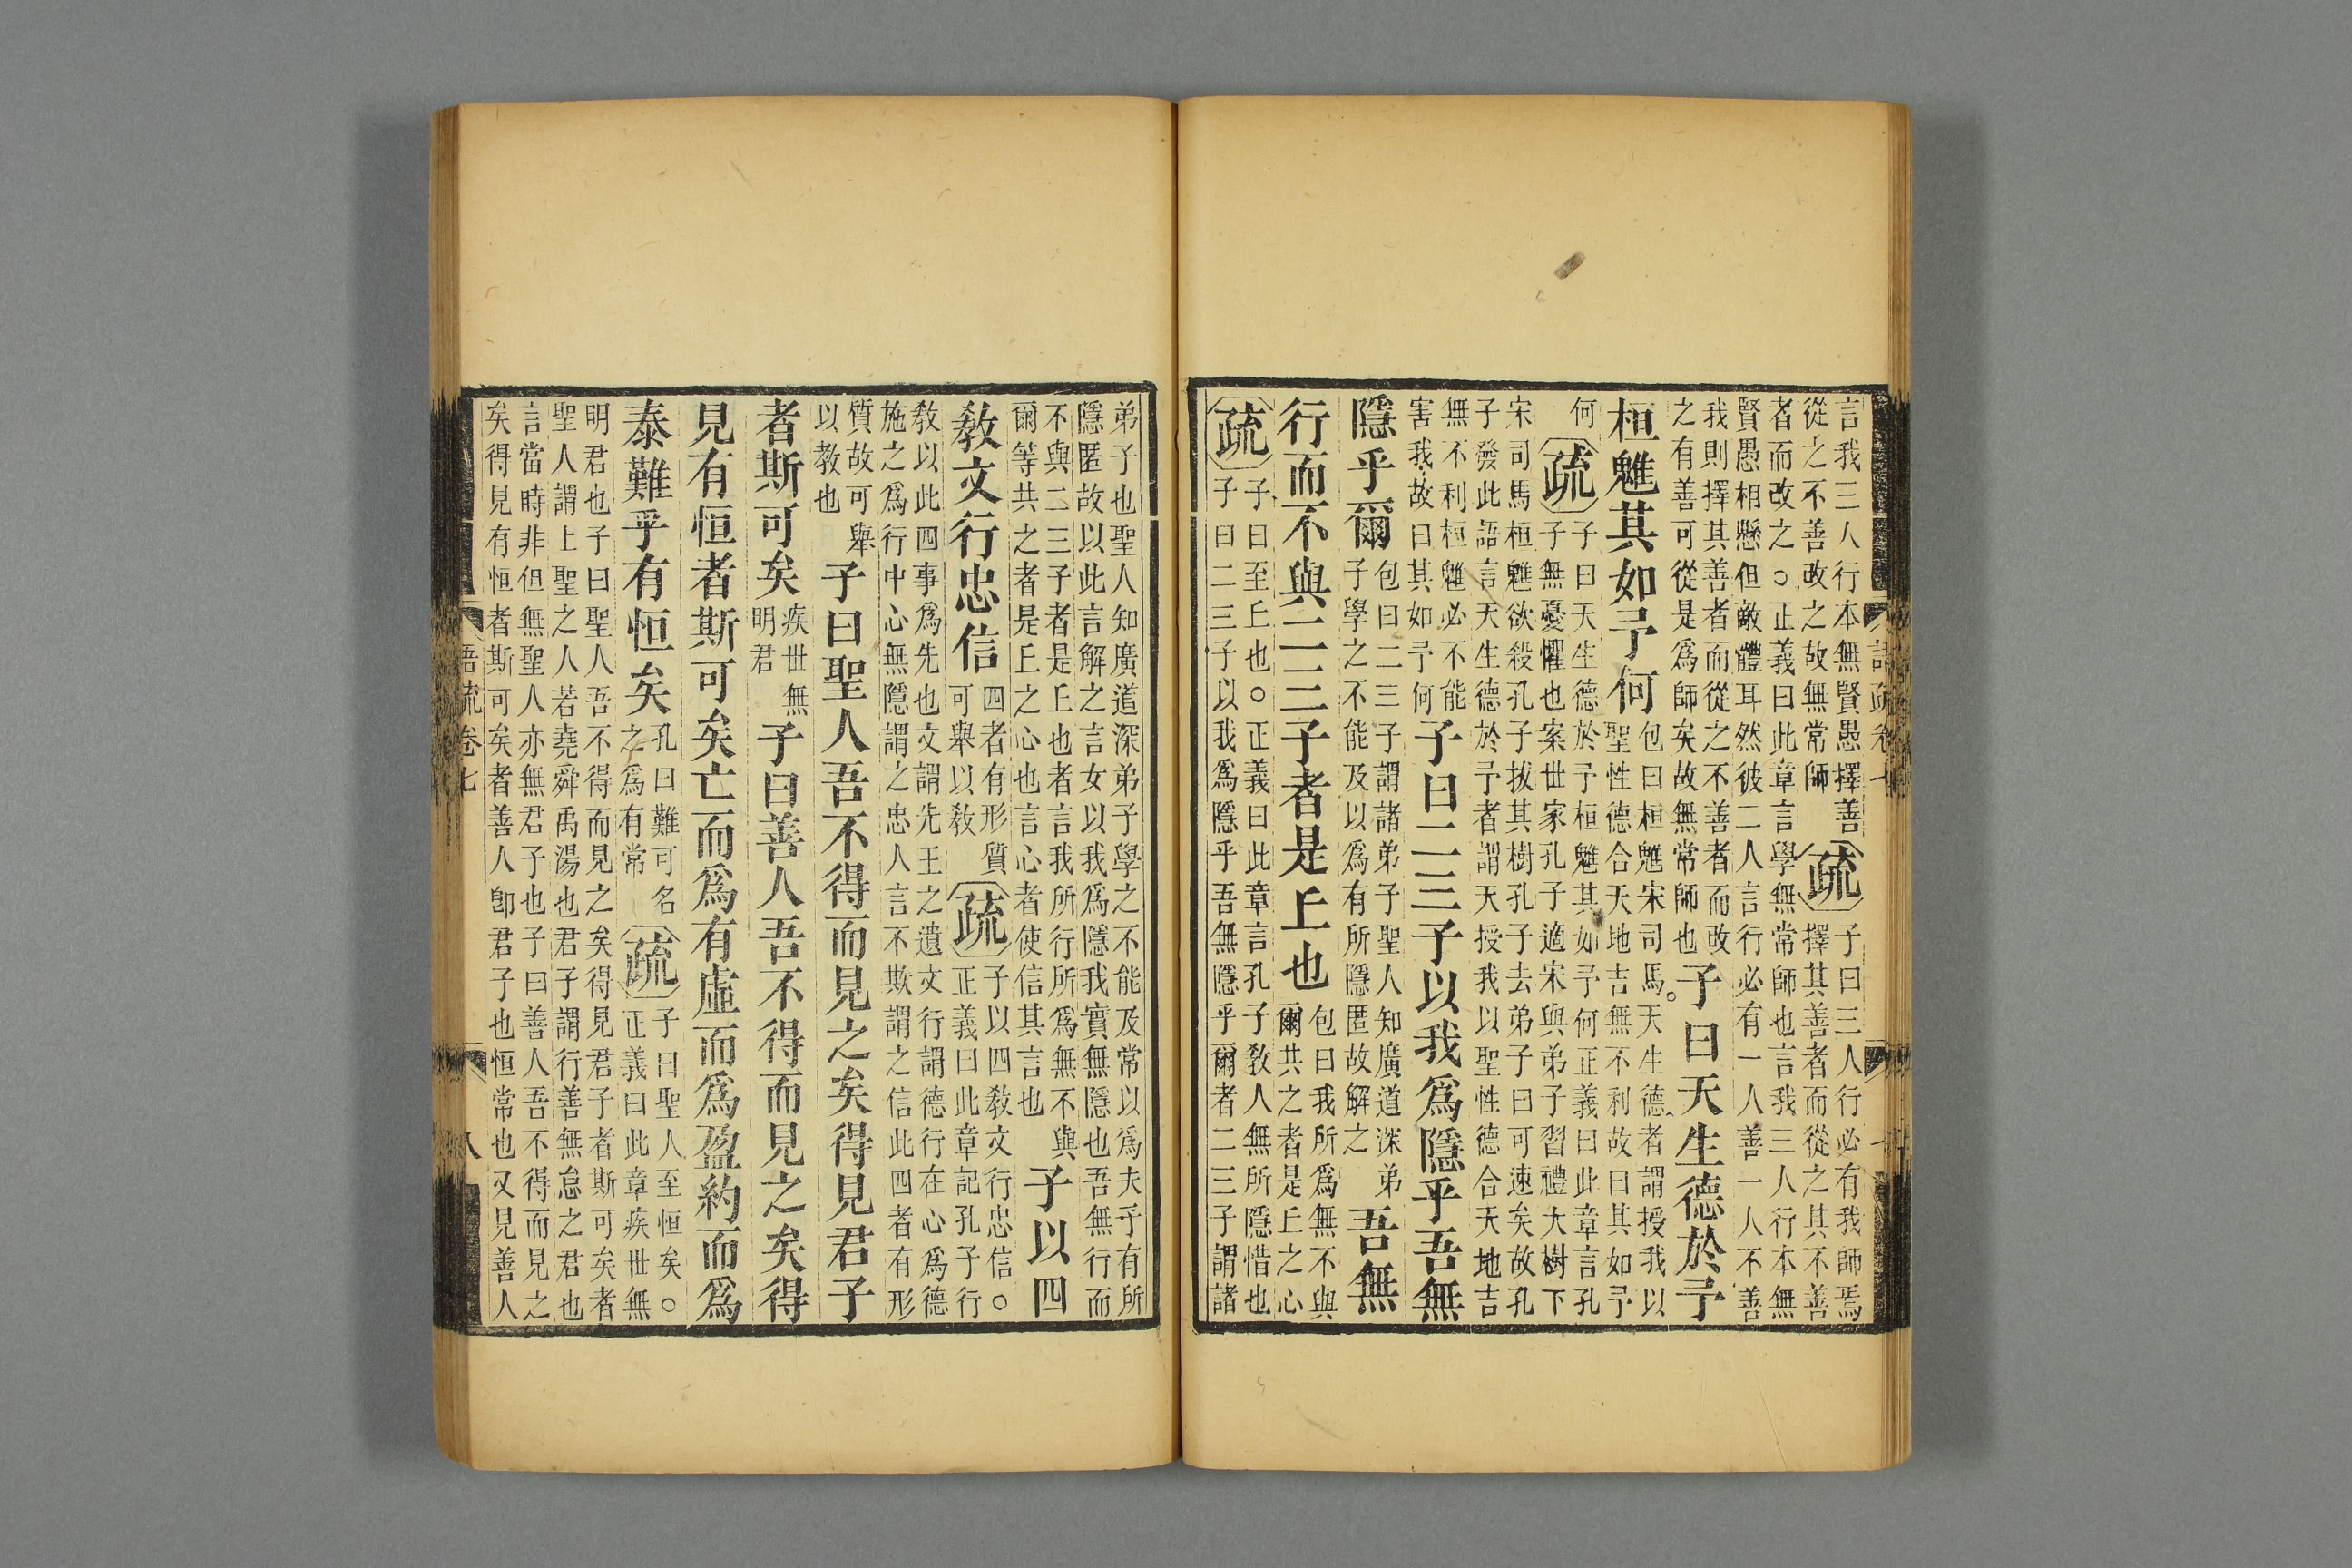 言我三人行本無賢愚擇善
從之不善改之故無常師
疏
子曰三人行必有我師焉
擇其善者而從之其不善
者而改之○正義曰此章言學無常師也言我三人行本無
賢愚相懸但敵體耳然彼二人言行必有一人善一人不善
我則擇其善者而從之不善者而改
之有善可從是爲師矣故無常師也
子曰天生德於予
桓魋其如予何
包曰桓魋宋司馬。天生德者謂授我以
聖性德合天地吉無不利故曰其如予
何
疏
子曰天生德於予桓魋其如予何正義曰此章言孔
子無憂懼也案世家孔子適宋與弟子習禮大樹下
宋司馬桓魋欲殺孔子拔其樹孔子去弟子曰可速矣故孔
子發此語言天生德於予者謂天授我以聖性德合天地吉
無不利桓魋必不能
害我故曰其如予何
子曰二三子以我爲隱乎吾無
隱乎爾
包曰二三子謂諸弟子聖人知廣道深弟
子學之不能及以爲有所隱匿故解之
吾無
行而不與二三子者是丘也
包曰我所爲無不與
爾共之者是丘之心
疏
子曰至丘也○正義曰此章言孔子敎人無所隱惜也
子曰二三子以我爲隱乎吾無隱乎爾者二三子謂諸
弟子也聖人知廣道深弟子學之不能及常以爲夫子有所
隱匿故以此言解之言女以我爲隱我實無隱也吾無行而
不與二三子者是丘也者言我所行所爲無不與
爾等共之者是丘之心也言心者使信其言也
子以四
敎文行忠信
四者有形質
可舉以敎
疏
子以四敎文行忠信○
正義曰此章記孔子行
敎以此四事爲先也文謂先王之遺文行謂德行在心爲德
施之爲行中心無隱謂之忠人言不欺謂之信此四者有形
質故可舉
以敎也
子曰聖人吾不得而見之矣得見君子
者斯可矣
疾世無
明君
子曰善人吾不得而見之矣得
見有恒者斯可矣亡而爲有虛而爲盈約而爲
泰難乎有恒矣
孔曰難可名
之爲有常
疏
子曰聖人至恒矣○
正義曰此章疾世無
明君也子曰聖人吾不得而見之矣得見君子者斯可矣者
聖人謂上聖之人若堯舜禹湯也君子謂行善無怠之君也
言當時非但無聖人亦無君子也子曰善人吾不得而見之
矣得見有恒者斯可矣者善人卽君子也恒常也又見善人
語疏卷七
八